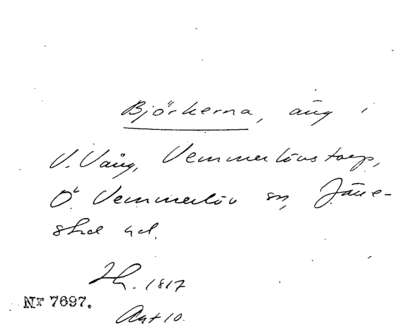 Björkerna, äng i
V. Vång, Vemmerlövstorp,
Ö. Vemmerlöv sn, Järre-
stad hd.
Lh. 1817
Akt 10.
Nr 7697.